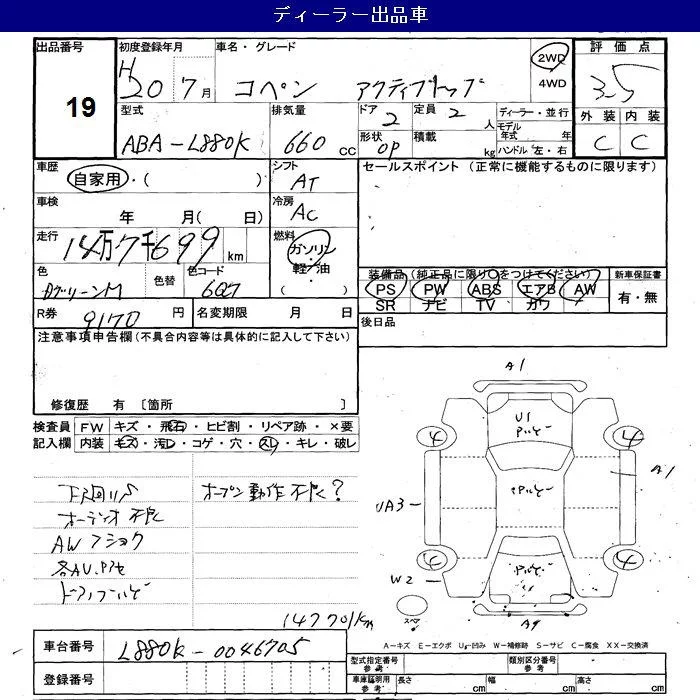 ディーラー出品車
出品番号 19
初度登録年月 H20 7月
車名・グレード コペン アクティブトップ
2WD
4WD
評価点 3.5
型式 ABA-L880K
排気量 660 cc
ドア 2
定員 2 人
ディーラー・並行
モデル年式 年
ハンドル 左・右
形状 OP
積載 kg
外装 内装
C C
車歴 自家用・( )
シフト AT
セールスポイント (正常に機能するものに限ります)
車検 年 月( 日)
冷房 AC
走行 14万7千699 km
燃料 ガソリン・軽油 ( )
色
色替
色コード 607
装備品(純正品に限り○をつけてください)
新車保証書
PS PW ABS エアB AW 有・無
SR ナビ TV カワ
R券 9170 円
名変期限 月 日
後日品
注意事項申告欄(不具合内容等は具体的に記入して下さい)
修復歴 有 〔箇所 〕
検査員記入欄
FW キズ・飛石・ヒビ割・リペア跡・×要
内装 キズ・汚レ・コゲ・穴・スレ・キレ・破レ
オープン動作不良?
オーディオ不良
147701km
A1
U1
4 4
A1
UA3
W2
4
スペア
A9
A-キズ E-エクボ U-凹み W-補修跡 S-サビ C-腐食 XX-交換済
車台番号 L880K-0046705
登録番号
型式指定番号 参考
類別区分番号 参考
車庫証明用 参考 長さ cm 幅 cm 高さ cm